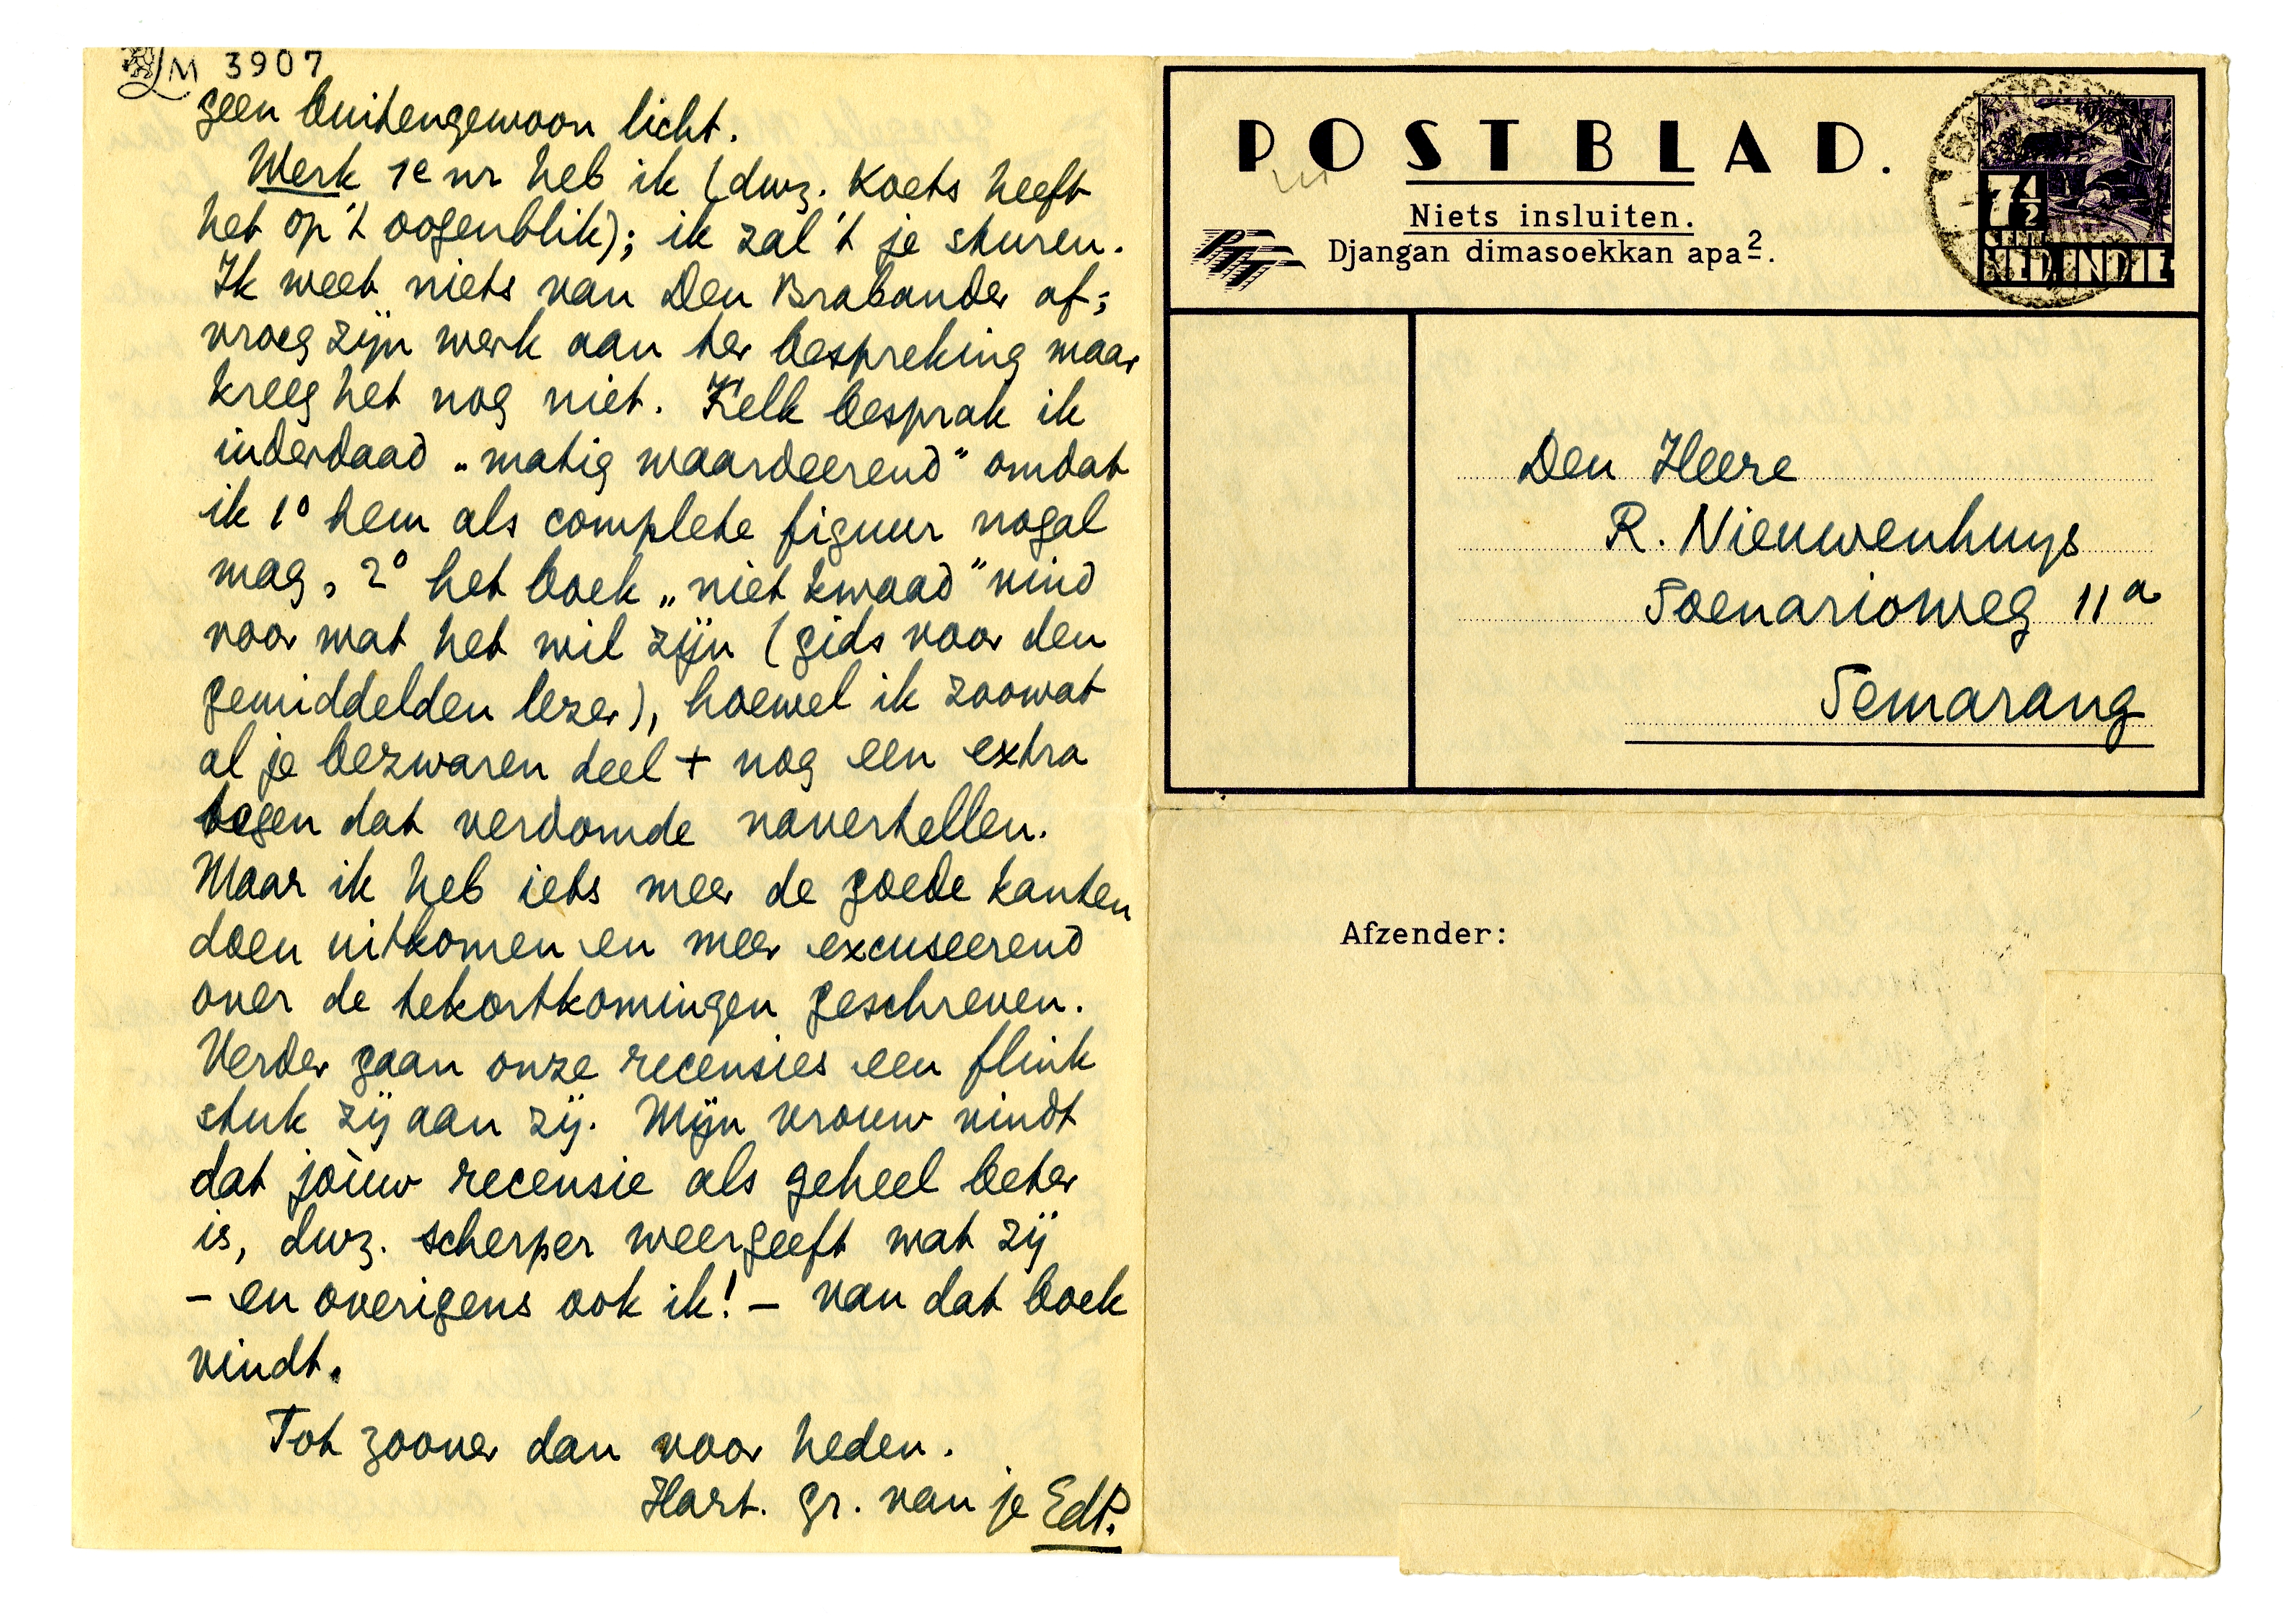 LM 3907
geen buitengewoon licht.
Werk 1e nr heb ik (dwz. Koets heeft
het op 't oogenblik); ik zal 't je sturen.
Ik weet niets van Den Brabander af;
vroeg zijn werk aan ter bespreking maar
kreeg het nog niet. Kelk besprak ik
inderdaad „matig waardeerend" omdat
ik 1° hem als complete figuur nogal
mag, 2° het boek „niet kwaad" vind
voor wat het wil zijn (gids voor den
gemiddelden lezer), hoewel ik zoowat
al je bezwaren deel + nog een extra
tegen dat verdomde navertellen.
Maar ik heb iets meer de goede kanten
doen uitkomen en meer excuseerend
over de tekortkomingen geschreven.
Verder gaan onze recensies een flink
stuk zij aan zij. Mijn vrouw vindt
dat jòuw recensie als geheel beter
is, dwz. scherper weergeeft wat zij
– en overigens ook ik! – van dat boek
vindt.
Tot zoover dan voor heden.
Hart. gr. van je EdP.
POSTBLAD.
Niets insluiten.
PTT
Djangan dimasoekkan apa2.
7½
CENT
NED. INDIE
Den Heere
R. Nieuwenhuys
Soenarioweg 11a
Semarang
Afzender: